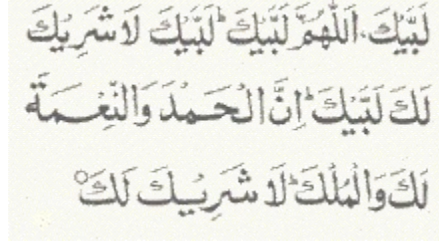 لَبَّيْكَ اَللّٰهُمَّ لَبَّيْكَ ؕ لَبَّيْكَ لَا شَرِيْكَ
لَكَ لَبَّيْكَ ؕ اِنَّ الْحَمْدَ وَالنِّعْمَةَ
لَكَ وَالْمُلْكَ ؕ لَا شَرِيْكَ لَكَ ۝